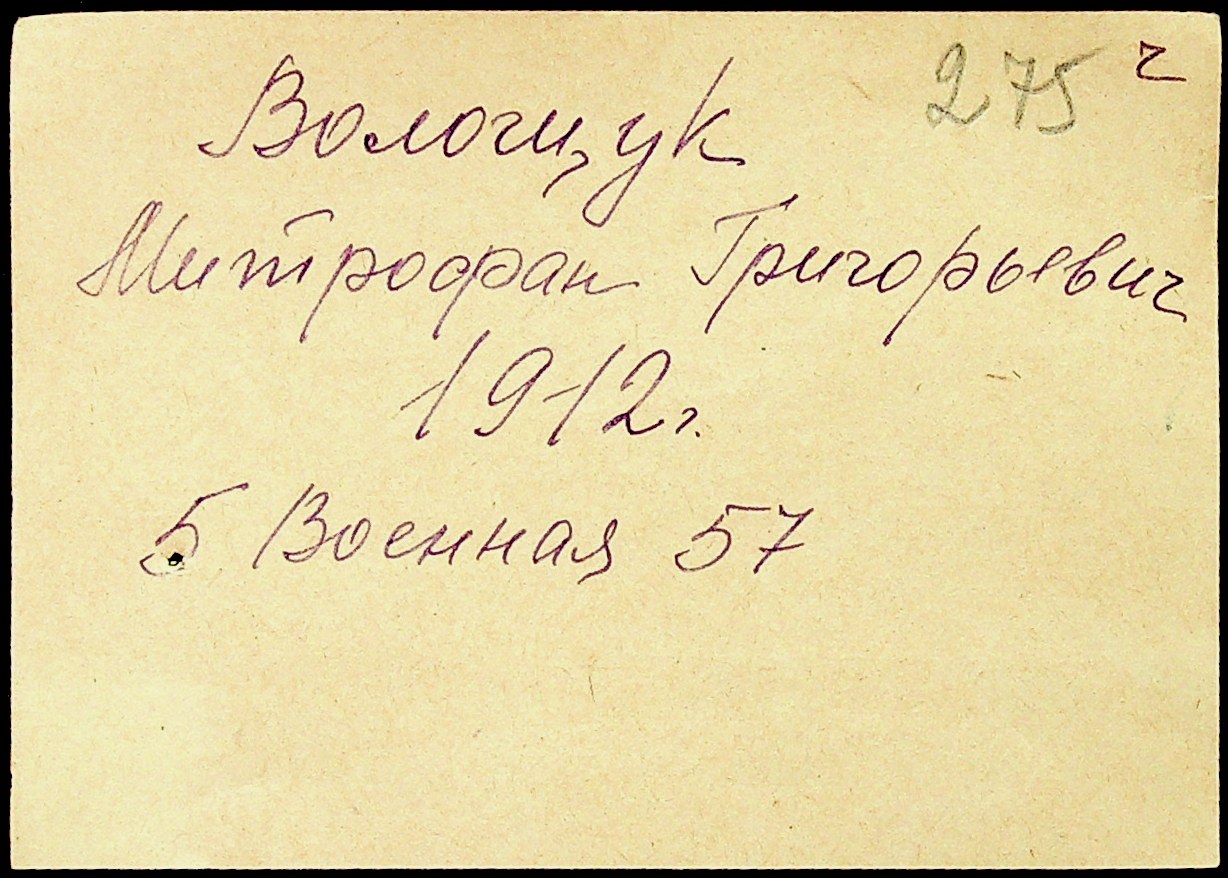 275 ч
Волощук
Митрофан Григорьевич
1912 г.
5 Военная 57